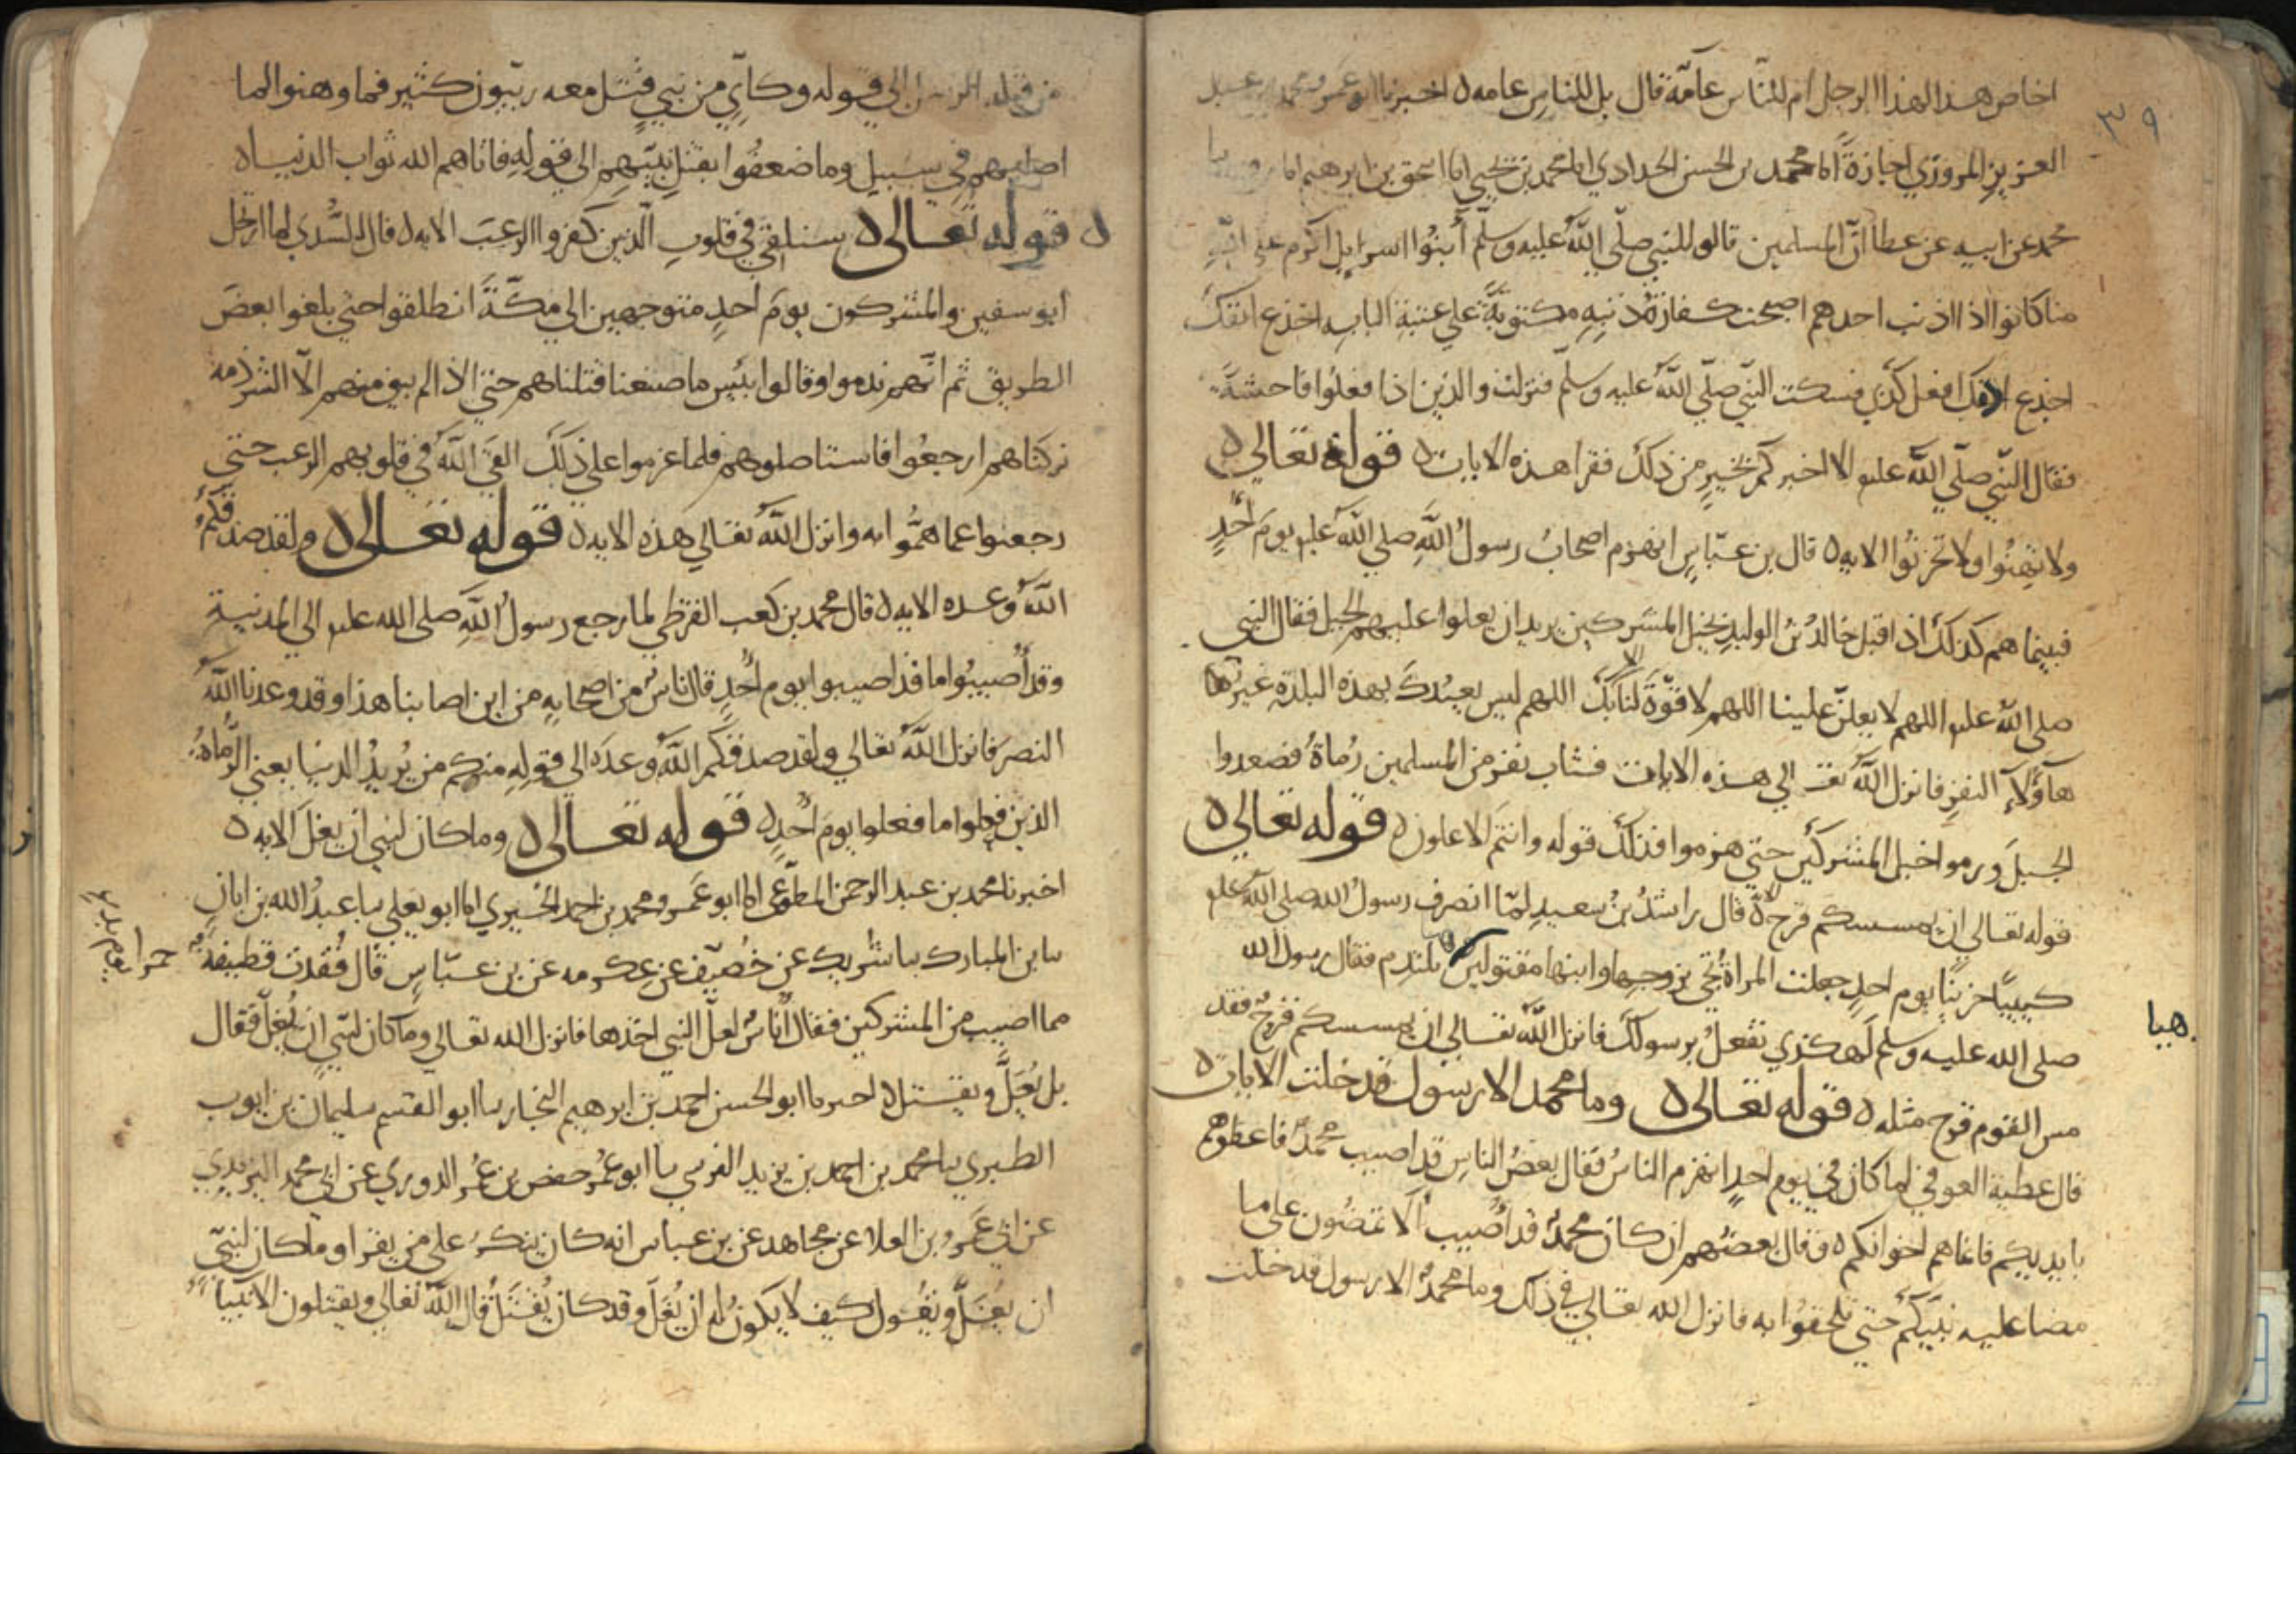 ٣٩
اخاص هذا لهذا الرجل ام للناس عآمّة قال بل للناس عامه ه اخبرنا ابو عمرو محمد بن عبد
العزيز المروزي اجازةً اما محمد بن الحسن الحدادي اما محمد بن يحيي اما اسحق بن ابرهيم اما روح ما
محمد عن ابيه عن عطا انّ المسلمين قالو للنبي صلّي اللّه عليه وسلّم أبنُوا اسرايل اكرم علي اللّهِ
منا كانوا اذا اذنب احدهم اصبحت كفارة ذنبهِ مكتوبةً علي عتبةِ البابه اجذع انفكَ
اجذع اذنك افعل كذي فسكت النبّي صلّي اللّه عليه وسلّم فنزلت والذين اذا فعلُوا فاحشةً
فقال النبّي صلّي اللّه عليه الا اخبركم بخيرٍ من ذلكَ فقرا هذه الايات ه قوله تعالي ه
ولا تهِنُوا ولا تحزنُوا الايه ه قال بن عبّاسٍ انهزم اصحابُ رسول اللّهِ صلي اللّه عليه يومَ احُدٍ
فبينما هم كذلكَ اذ اقبل خالدُ بنُ الوليدِ بخيل المشركين يريد ان يعلوا عليهم الجبل فقال النبي
صلي اللّه عليه اللهم لا يعلنّ علينا اللهم لا قوّةَ لنا الا بكَ اللهم ليس يعبُدكَ بهذه البلدةِ غير
هآؤلآءِ النفرِ فانزل اللّهُ تعالي هذه الايات فثاب نفر من المسلمين رُماةُ فصعدوا
الجبلَ ورموا خيل المشركين حتي هزموا فذلكَ قوله وانتم الاعلون ه قوله تعالي ه
قوله تعالي ان يمسسكم قرح الاية قال راشدُ بنُ سعيدٍ لمّا انصرف رسولُ الله صلي اللّه عليه
كييبًا حزينًا يوم احدٍ جعلت المراةُ تجي بزوجها وابنها مقتولين تلتدِم فقال رسول الله
هبا
صلي الله عليه وسلم أهكذي تفعلُ برسولكَ فانزل اللّهُ تعالي ان يمسسكم قرح فقد
مس القوم قرح مثله ه قوله تعالي ه وما محمد الا رسول قد خلت الايات ه
قال عطية العوفي لما كان في يوم احدٍ انهزم الناسُ فقال بعضُ الناسِ قد اصيب محمدٌ فاعطوهم
بايديكم فانما هم اخوانكم ه وقال بعضُهم ان كان محمدٌ قد أُصيب ألا تمضُون علي ما
مضا عليه نبيّكم حتي تلحقُوا به فانزل الله تعالي في ذلك وما محمدٌ الا رسول قد خلت
من قبله الرسل الي قوله وكايّن من نبي قُتل معه ربّيون كثير فما وهنوا لما
اصابهم في سبيل وما ضعفُوا بقتل نبيّهِم الي قولهِ فاتاهم الله ثواب الدنيا ه
ه قوله تعالي ه سنلقي في قلوب الّذين كفروا الرعبَ الايه ه قال السُّدي لما ارتحل
ابو سفين والمشركون يومَ احدٍ متوجهين الي مكّةَ انطلقوا حتي بلغوا بعضَ
الطريق ثم انّهم ندموا وقالوا بئيس ما صنعنا قتلناهم حتي اذا لم يبق منهم الّا الشرذمة
تركناهم ارجعُوا فاستاصلوهم فلما عزموا علي ذلكَ القي اللّهُ في قلوبهم الرعب حتي
رجعوا عما همُّوا به وانزل اللّهُ تعالي هذه الايه ه قوله تعالي ه ولقد صدقكمُ
اللّهُ وعده الايه ه قال محمد بن كعب القرظي لما رجع رسولُ اللّهِ صلي الله عليه الي المدينة
وقد أُصيبُوا ما قد اصيبوا يوم احُدٍ قال ناسٌ من اصحابهِ من اين اصابنا هذا وقد وعدنا اللّهُ
النصرَ فانزل اللّهُ تعالي ولقد صدقكم اللّهُ وعدَه الي قولهِ منكم من يُريدُ الدنيا يعني الرُّماةُ
الذين فعلوا ما فعلوا يومَ احُدٍ ه قوله تعالي ه وما كان لنبي ان يغل الايه ه
اخبرنا محمد بن عبد الرحمن المطوّعي اما ابو عمرو محمد بن احمد الحيري اما ابو يعلي ما عبدُ الله بن ابان
ما بن المبارك ما شريك عن خُصيف عن عكرمه عن بن عبّاسٍ قال فُقدت قطيفة
حمرا
مما اصيب من المشركين فقال اناسٌ لعلّ النبي اخذها فانزل الله تعالي وما كان لنبي ان يُغلّ فقال
بل يُغلّ ويقتل ه اخبرنا ابو الحسن احمد بن ابرهيم النجار ما ابو القسم سليمان بن ايوب
الطبري ما محمد بن احمد بن يزيد النرسي ما ابو عُمر حفص بن عُمر الدوري عن ابي محمد اليزيدي
عن ابي عمرو بن العلا عن مجاهد عن بن عباس انه كان ينكرُ علي من يقرا وما كان لنبيّ
ان يُغَلَّ ويقول كيف لا يكونُ له ان يُغَلَّ وقد كان يُقتَلُ قال اللّه تعالي ويقتلون الانبيآ